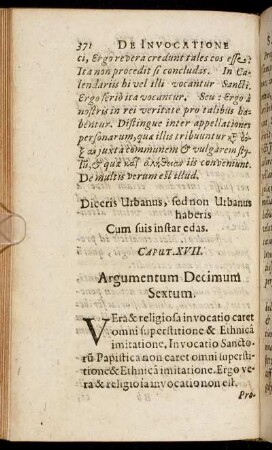 371 DE INVOCATIONE
ci, Ergo revera credunt tales eos esse?
Ita non procedit si concludas. In Ca-
lendariis hi vel illi vocantur Sancti.
Ergo serio ita vocantur. Seu: Ergo à
nostris in rei veritate pro talibus ha-
bentur. Distingue inter appellationes
personarum, quæ illis tribuuntur
juxta communem & vulgarem sty-
lum, & quæ iis conveniunt.
De multis verum est illud.
Diceris Urbanus, sed non Urbanus
haberis
Cum suis instar edas.
CAPUT. XVII.
Argumentum Decimum
Sextum.
VEra & religiosa invocatio caret
omni superstitione & Ethnicâ
imitatione. Invocatio Sancto-
rũ Papistica non caret omni supersti-
tione & Ethnicâ imitatione. Ergo ve-
ra & religiosa invocatio non est.
Pro-